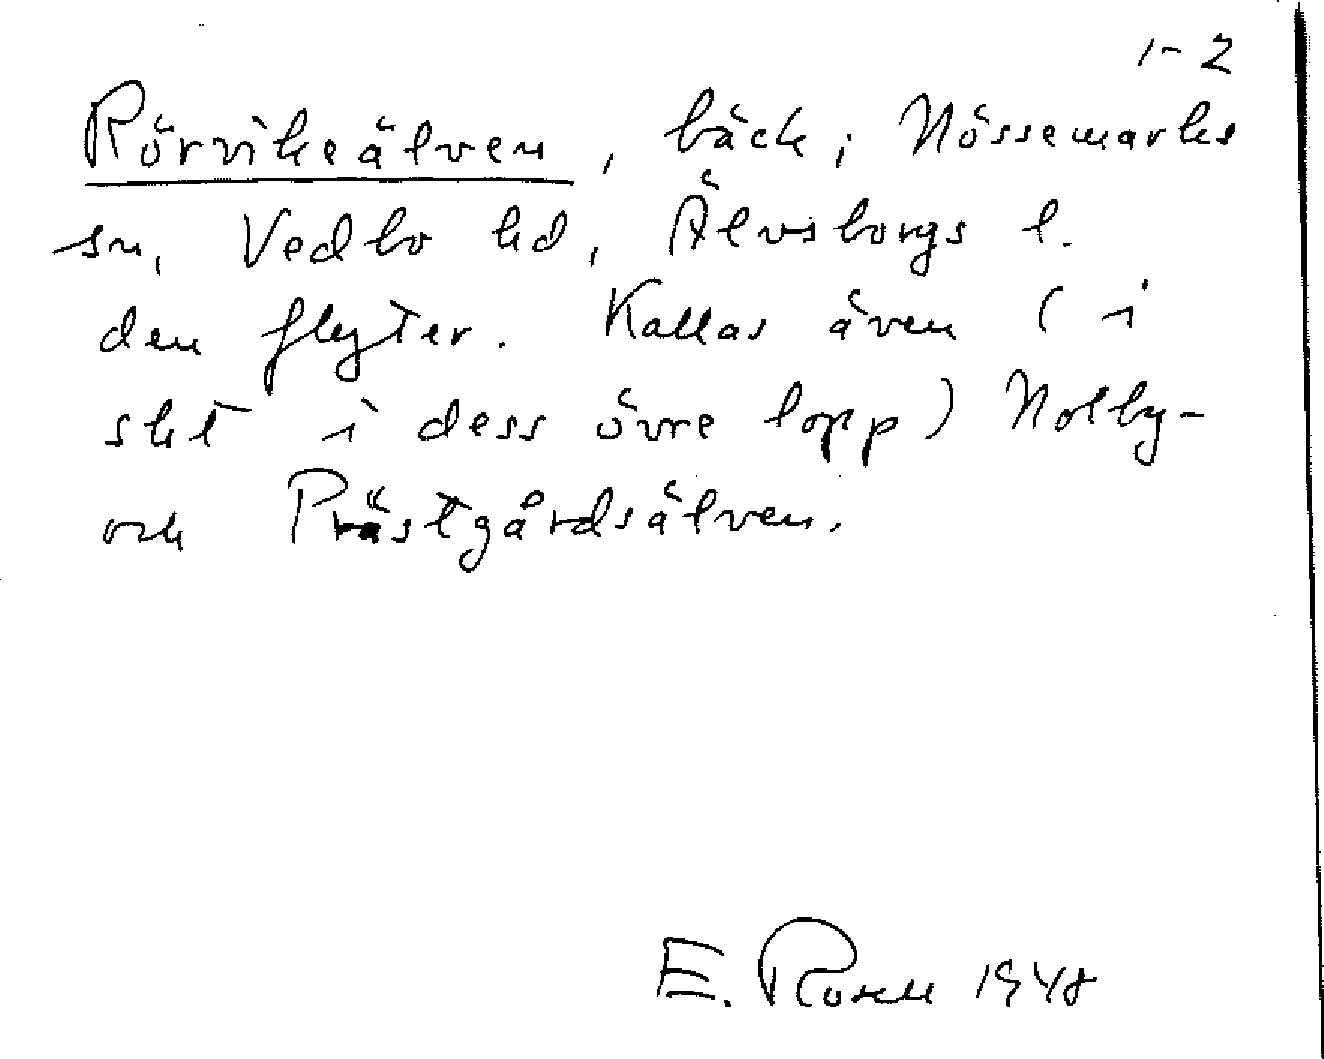 1-2
Rörvikeälven, bäck i Nössemarks
sn, Vedbo hd, Älvsborgs l.
den flyter. Kallas även (i
sht i dess övre lopp) Nolby-
och Prästgårdsälven.
E. Rosell 1948